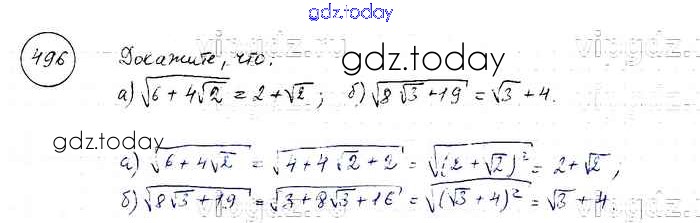 gdz.today
496 Докажите, что: gdz.today vipgdz.ru
а) √(6 + 4√2) = 2 + √2 ; б) √(8√3 + 19) = √3 + 4.
gdz.today
а) √(6 + 4√2) = √(4 + 4√2 + 2) = √((2 + √2)²) = 2 + √2 ;
б) √(8√3 + 19) = √(3 + 8√3 + 16) = √((√3 + 4)²) = √3 + 4